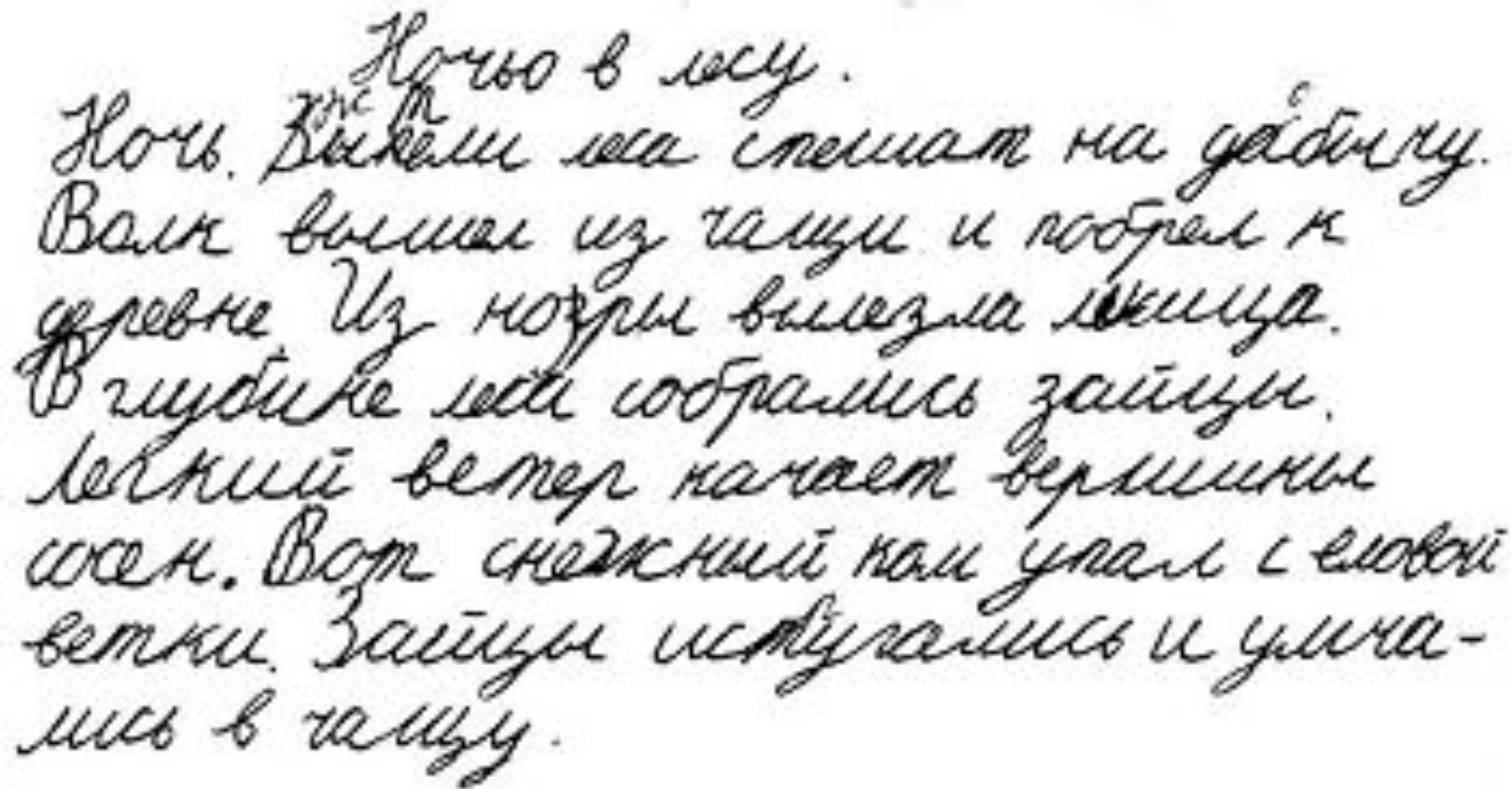 Ночью в лесу.
Ночь. Жители леса спешат на добычу.
Волк вышел из чащи и побрел к
деревне. Из норы вылезла лисица.
В глубине леса собрались зайцы.
Легкий ветер качает вершины
сосен. Вот снежный ком упал с еловой
ветки. Зайцы испугались и умча-
лись в чащу.